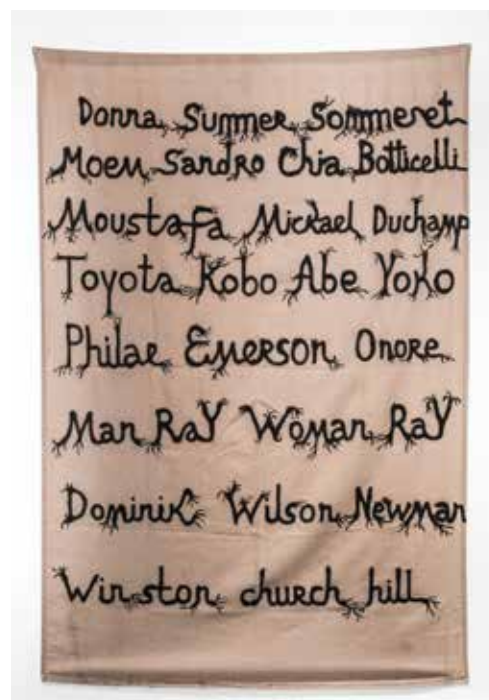 Donna Summer Sommeret
Moem Sandro Chia Botticelli
Moustafa Mickael Duchamp
Toyota Kobo Abe Yoko
Philae Emerson Onore
Man RaY Woman RaY
DominiK Wilson Newman
Winston church hill